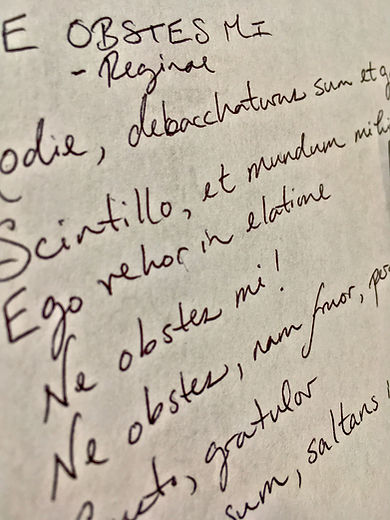 E OBSTES MI
- Reginae
odie, debacchaturus sum et
Scintillo, et mundum mihi
Ego vehor in elatione
Ne obstes mi!
Ne obstes, nam fruor, per
gratulor
sum, saltans